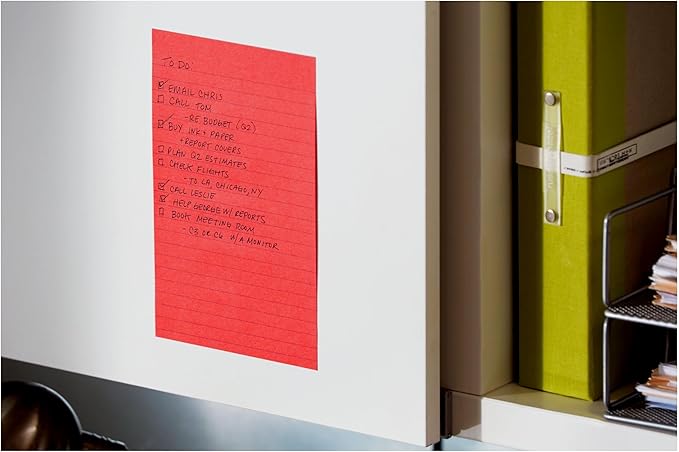 TO DO:
☑ EMAIL CHRIS
☐ CALL TOM
- RE BUDGET (Q2)
☑ BUY INK + PAPER
+ REPORT COVERS
☐ PLAN Q2 ESTIMATES
☐ CHECK FLIGHTS
- TO LA, CHICAGO, NY
☑ CALL LESLIE
☑ HELP GEORGE W/ REPORTS
☐ BOOK MEETING ROOM
- C3 OR C6 W/ A MONITOR